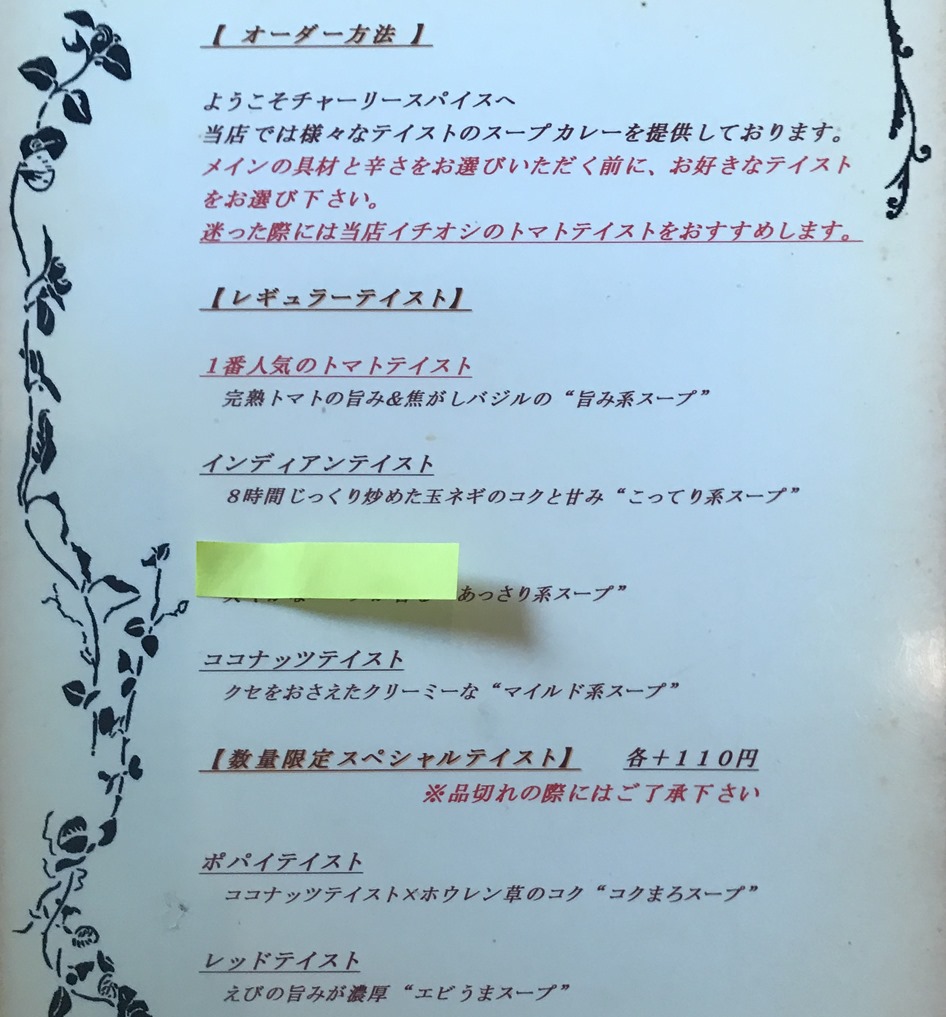 【 オーダー方法 】
ようこそチャーリースパイスへ
当店では様々なテイストのスープカレーを提供しております。
メインの具材と辛さをお選びいただく前に、お好きなテイスト
をお選び下さい。
迷った際には当店イチオシのトマトテイストをおすすめします。
【レギュラーテイスト】
1番人気のトマトテイスト
完熟トマトの旨み&焦がしバジルの“旨み系スープ”
インディアンテイスト
8時間じっくり炒めた玉ネギのコクと甘み“こってり系スープ”
あっさり系スープ”
ココナッツテイスト
クセをおさえたクリーミーな“マイルド系スープ”
【数量限定スペシャルテイスト】 各+110円
※品切れの際にはご了承下さい
ポパイテイスト
ココナッツテイスト×ホウレン草のコク“コクまろスープ”
レッドテイスト
えびの旨みが濃厚“エビうまスープ”